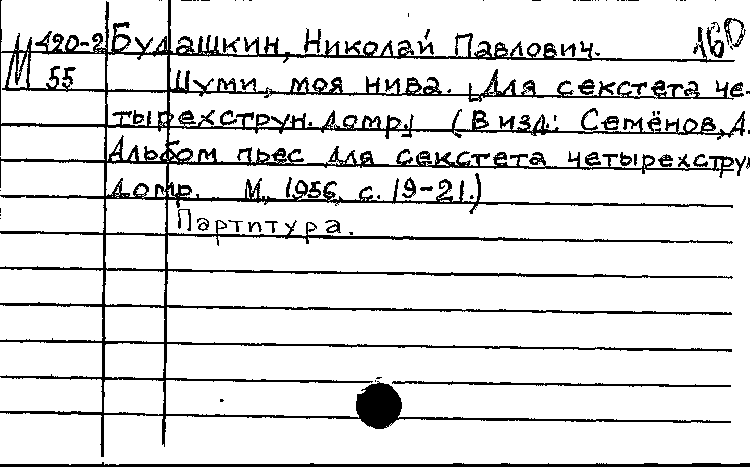 М 420-2 Будашкин, Николай Павлович. 160
55 Шуми, моя нива. [Для секстета че-
тырехструн. домр] (В изд: Семёнов, А.
Альбом пьес для секстета четырехструн
домр. М., 1956, с. 19-21.)
Партитура.